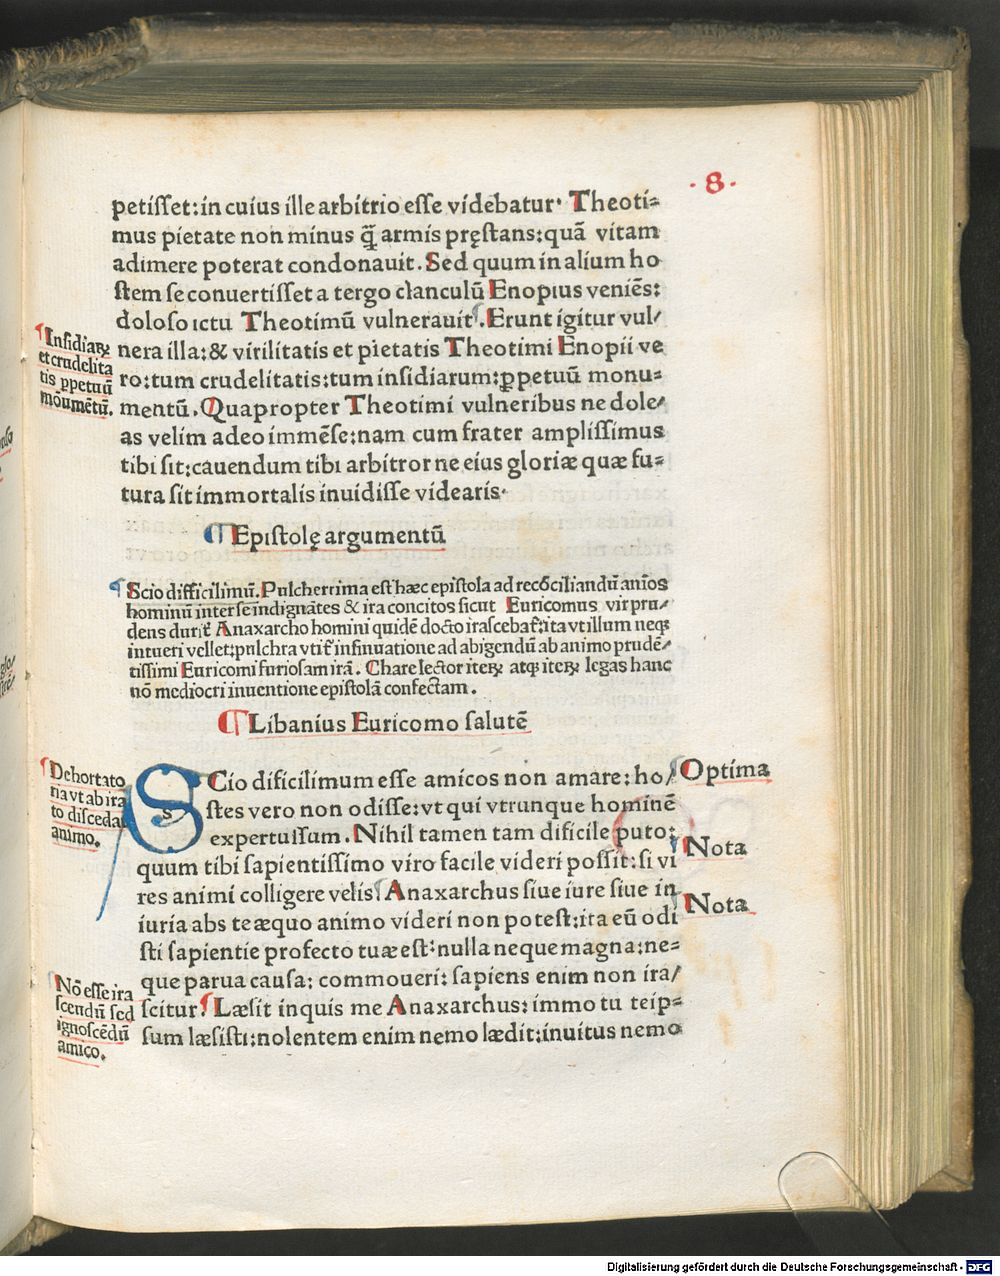 ·8·
petiſſet:in cuius ille arbitrio eſſe videbatur· Theoti⸗
mus pietate non minus q̃ armis pręſtans:quã vitam
adimere poterat condonauit. Sed quum in alium ho
ſtem ſe conuertiſſet a tergo clanculũ Enopius veniẽs:
doloſo ictu Theotimũ vulnerauit. Erunt igitur vul/
nera illa:& virilitatis et pietatis Theotimi Enopii ve
ro:tum crudelitatis:tum inſidiarum:ꝑpetuũ monu⸗
mentũ. Quapropter Theotimi vulneribus ne dole/
as velim adeo immẽſe:nam cum frater ampliſſimus
tibi ſit:cauendum tibi arbitror ne eius gloriæ quæ fu⸗
tura ſit immortalis inuidiſſe videaris·
¶Inſidiaꝝ
et crudelita
tis ꝑpetuũ
mõumẽtũ.
¶Epiſtolę argumentũ
¶Scio difficilimũ. Pulcherrima eſt hæc epiſtola ad recõciliandũ anĩos
hominũ inter ſe indignãtes & ira concitos ſicut Euricomus vir pru/
dens duriť Anaxarcho homini quidẽ docto iraſcebaſ:ita vt illum neqʒ
intueri vellet:pulchra vtiť inſinuatione ad abigendũ ab animo prudẽ/
tiſſimi Euricomi furioſam irã. Chare lector iteꝝ atqʒ iteꝝ legas hanc
nõ mediocri inuentione epiſtolã confectam.
¶Libanius Euricomo ſalutẽ
SCio dificilimum eſſe amicos non amare:ho/
ſtes vero non odiſſe:vt qui vtrunque hominẽ
expertuiſſum. Nihil tamen tam dificile puto:
quum tibi ſapientiſſimo viro facile videri poſſit:ſi vi
res animi colligere velis. Anaxarchus ſiue iure ſiue in
iuria abs te æquo animo videri non poteſt:ita eũ odi
ſti ſapientie profecto tuæ eſt:nulla neque magna:ne⸗
que parua cauſa: commoueri: ſapiens enim non ira/
ſcitur. Læſit inquis me Anaxarchus: immo tu teip⸗
ſum læſiſti:nolentem enim nemo lædit:inuitus nemo
¶Dehortato
ria vt ab ira
to diſcedat
animo.
Nõ eſſe ira
ſcendũ ſed
ignoſcẽdũ
amico.
Optima
Nota
Nota
Digitalisierung gefördert durch die Deutsche Forschungsgemeinschaft - DFG